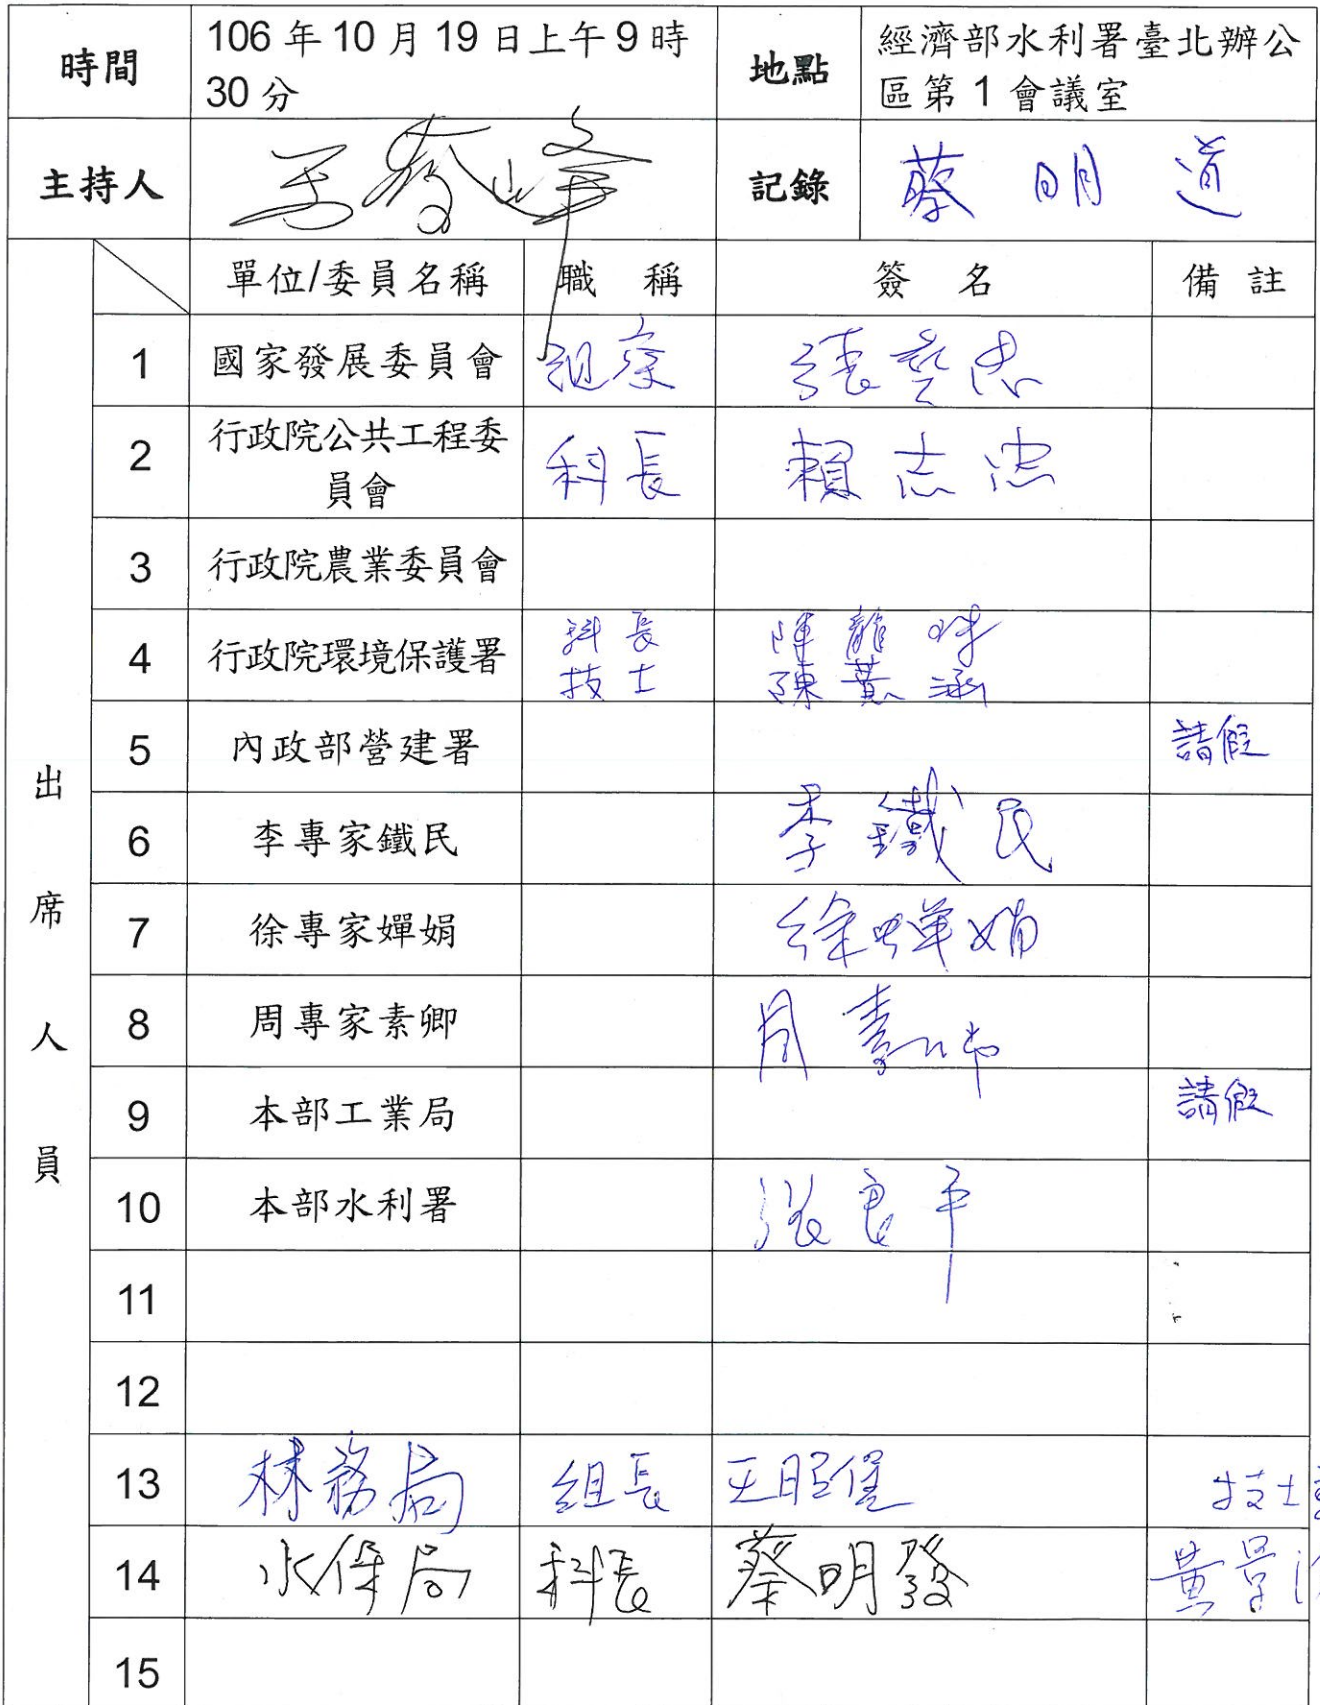 時間
106 年 10 月 19 日上午 9 時
30 分
地點
經濟部水利署臺北辦公
區第 1 會議室
主持人
王
峰
記錄
蔡明道
單位/委員名稱
職 稱
簽 名
備 註
出席人員
1
國家發展委員會
張
2
行政院公共工程委
員會
科長
賴志忠
3
行政院農業委員會
4
行政院環境保護署
科長
技士
陳
陳 涵
5
內政部營建署
請假
6
李專家鐵民
李鐵民
7
徐專家嬋娟
徐嬋娟
8
周專家素卿
周素卿
9
本部工業局
請假
10
本部水利署
張良平
11
12
13
林務局
組長
王昭堡
技士
14
水保局
科長
蔡明發
黃
15